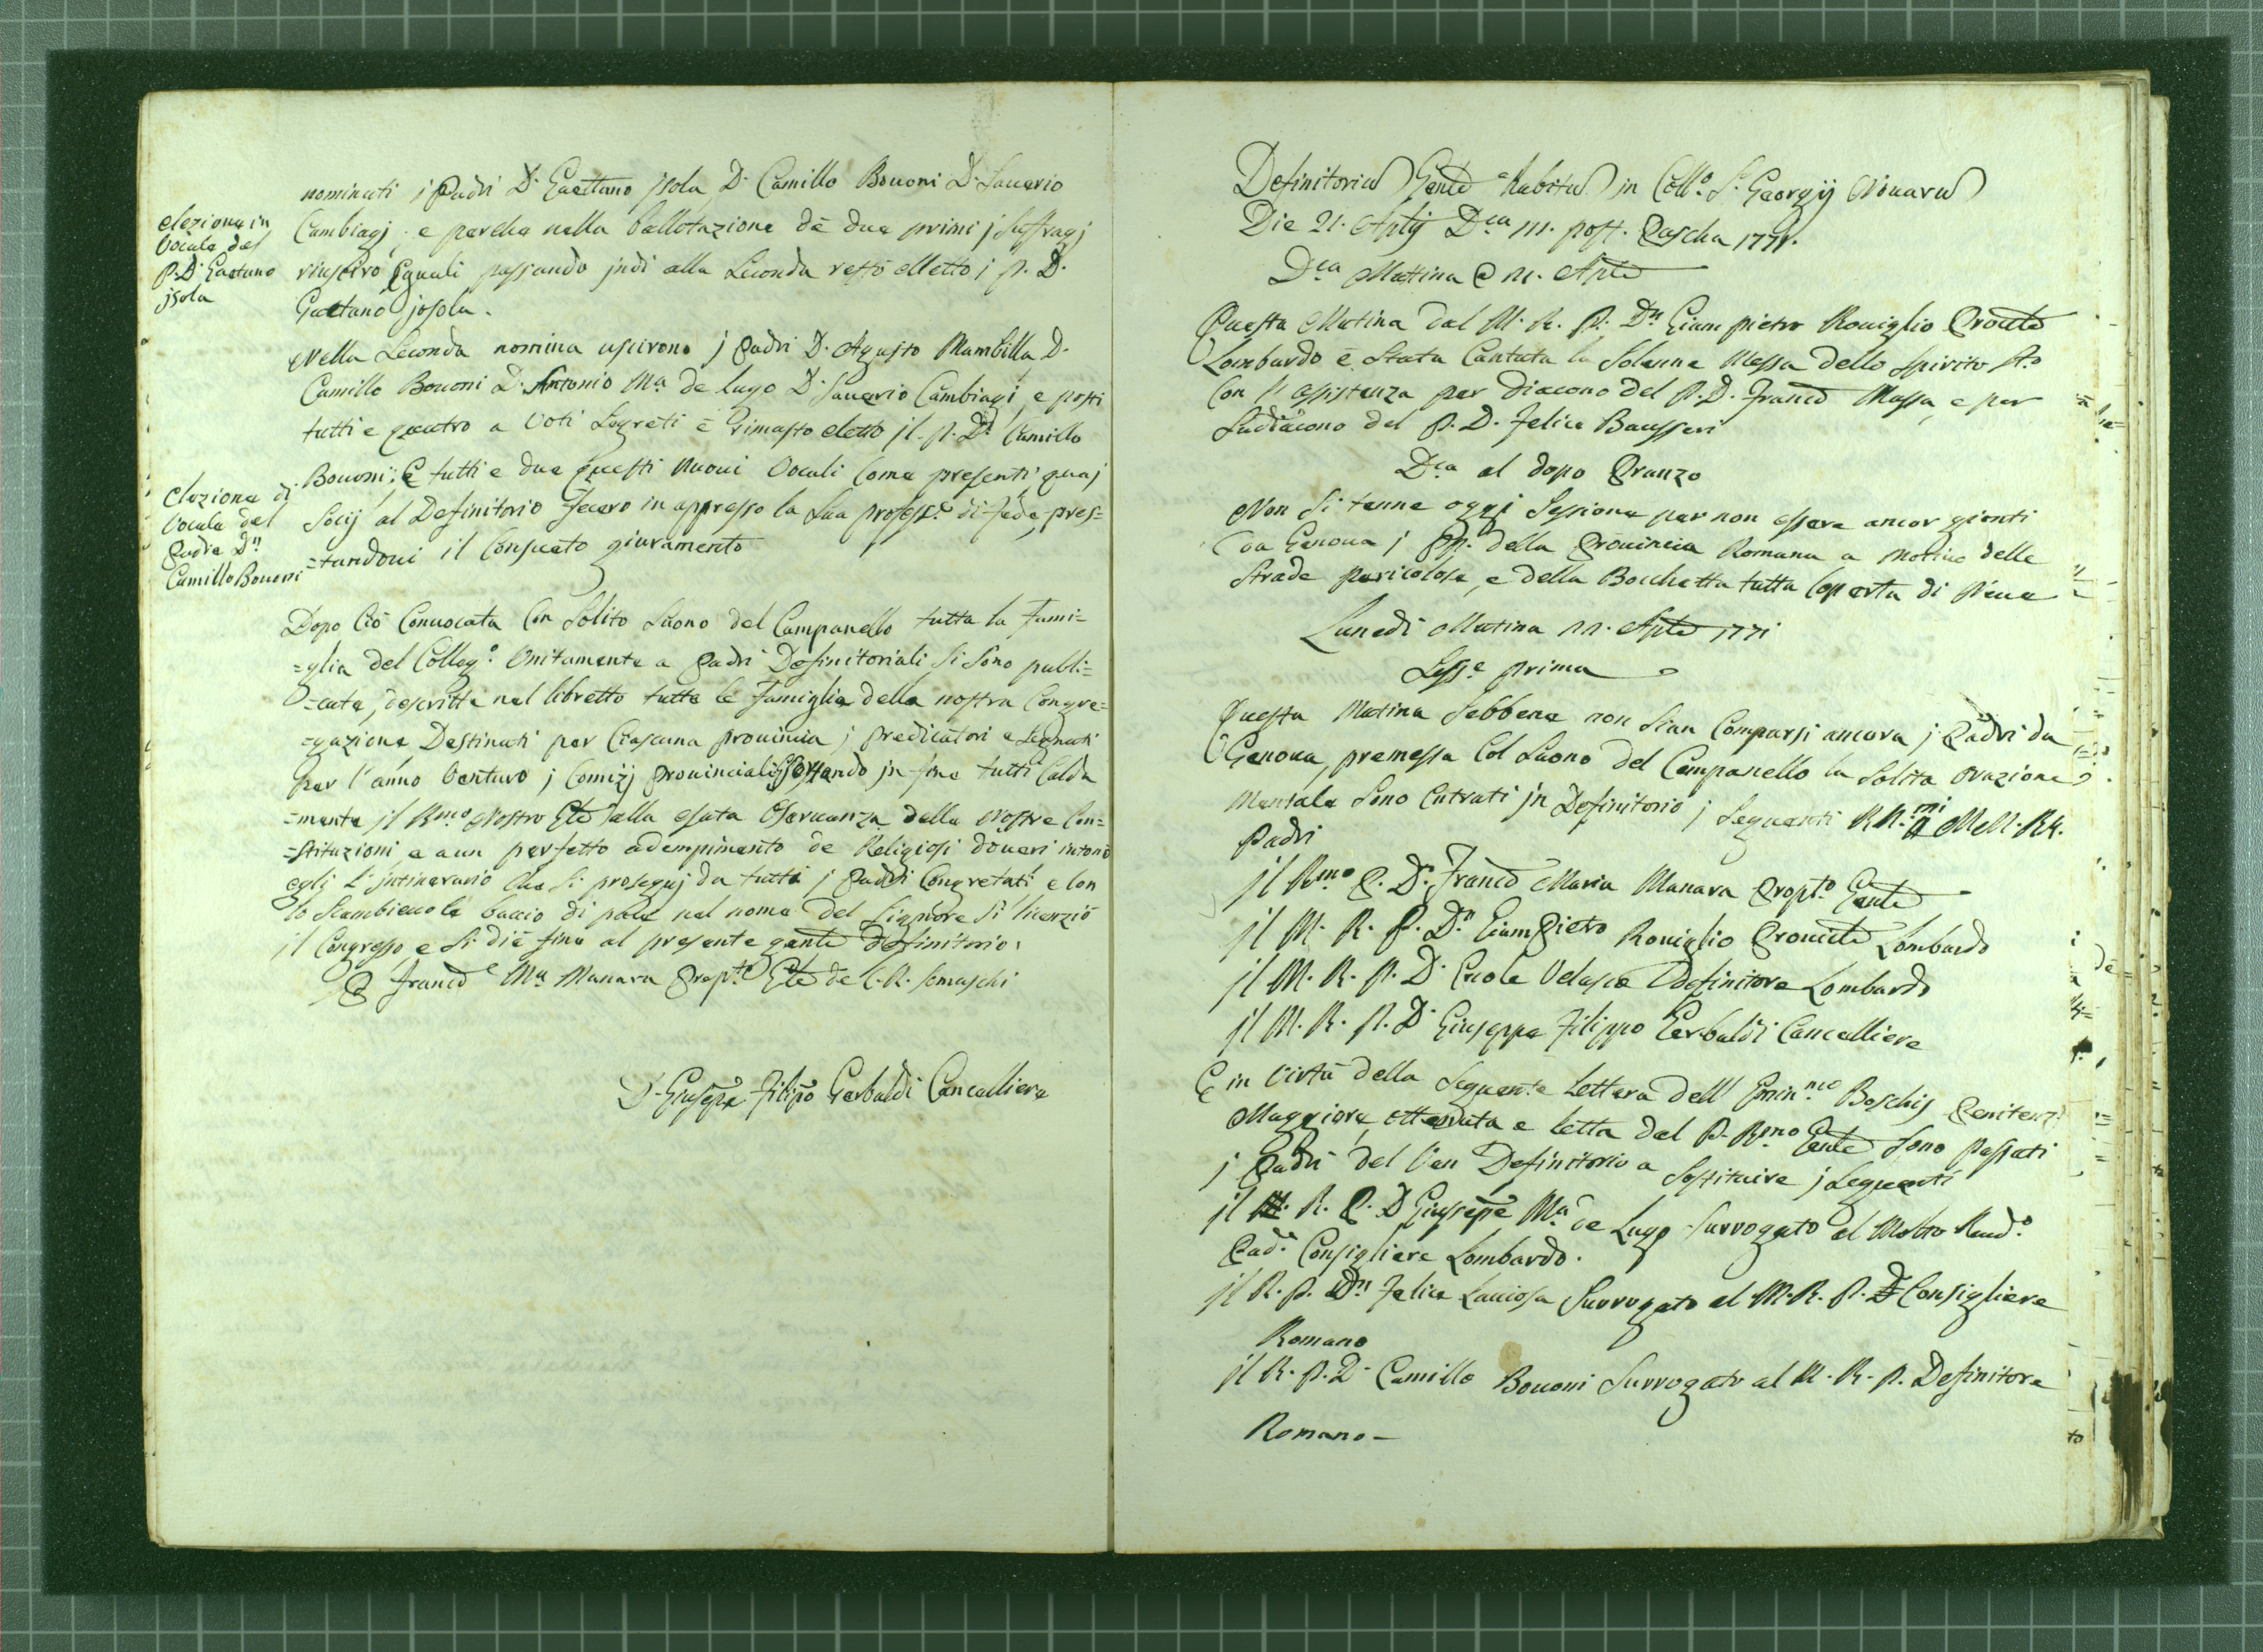 nominati j Padri D. Gaettano jsola, D. Camillo Bouoni D. Sauerio
elezione in
Vocale del
P. D. Gaetano
jsola
Cambiagj, e perche nella ballotazione dè due primi j suffragj
riuscirò Eguali passando jndi alla Seconda restò elletto j P. D.
Gaetano josola.
Nella Seconda nomina uscirono j Padri D. Agusto Mambilla, D.
Camillo Bouoni D. Antonio Ma de lugo D. Sauerio Cambiagi, e posti
tutti e quatro a Voti Segreti è Rimasto eletto jl P. Dn Camillo
Bouoni; E tutti e due questi nuoui Vocali come presenti, quaj
elezione di
Vocale del
Padre Dn
Camillo Bouoni
Socij al Definitorio fecero in appresso la Sua profess.e di fede, pres=
=tandoui il Consueto giuramento
Dopo Ciò Conuocata Con Solito Suono del Campanello tutta la Fami=
=glia del Colleg.o Unitamente a Padri Definitoriali si sono publi=
=cate, descritte nel libretto tutte le Famiglie della nostra Congre=
=gazione Destinati per Ciascuna prouincia j Predicatori e Segnati
per l'anno Venturo j Comizj Prouinciali Essortando jn fine tutti Calda
=mente jl Rmo Nostro Gle alla esata Osservanza delle Nostre Con=
=stituzioni, e a un perfetto adempimento de Religiosi doueri intonò
egli l'jntinerario che si proseguj da tutti j Padri Congretati e Con
lo Scambieuole baccio di pace nel nome del Signore si licenziò
jl Congresso e si diè fine al presente gente definitorio.
D Franco Ma Manara Prep.to Gle de C. R. Somaschi
D. Giuseppe Filippo Gerbaldi Cancelliere
Definitoriu Gente Habitu in Coll.o S. Georgij Nouaru
Die 21. Aplij Dca III. post. Pascha 1771.
Dca Mattina 21. Aple
Questa Matina dal M. R. P. Dn Giampietro Rouiglio Proule
Lombardo è stata Cantata la Solenne Messa dello Spirito Sto
Con l'assistenza per Diacono del P. D. Franco Massa, e per
Sudiacono del P. D. Felice Bausseri
Dca al dopo Pranzo
Non si tenne oggi Sessione per non essere ancor gionti
da Genoua j PP. della Prouincia Romana a motiuo delle
Strade pericolose, e della Bocchetta tutta Coperta di Neue
Lunedi Matina 22. Aple 1771
Sess.e prima
Questa Matina Sebbene non sian Comparsi ancora j Padri da
Genoua, premessa Col Suono del Campanello la solita orazione
Mentale Sono Entrati jn Definitorio j Seguenti RR.mi MM. RR.
Padri
jl Rmo P. D. Franco Maria Manara Prept.o Genle
jl M. R. P. Dn GiamPietro Rouiglio Prouinle Lombardo
jl M. R. P. D. Ercole Velasco Definitore Lombardo
jl M. R. P. D Giuseppe Filippo Gerbaldi Cancelliere
E in Virtù della Seguente Lettera dell' Emin.mo Boschij Penitenz.
Maggiore, ottenuta e letta dal P. Rmo Genle sono passati
j Padri del Ven Definitorio a Sostituire j Seguenti
jl M. R. P. D Giuseppe Ma de Lugo Surrogato al Molto Reud.o
Pad.e Consigliere Lombardo.
jl R. P. Dn Felice Lauiosa Surrogato al M. R. P. D Consigliere
Romano
jl R. P. D. Camillo Bouoni Surrogato al M. R. P. Definitore
Romano –